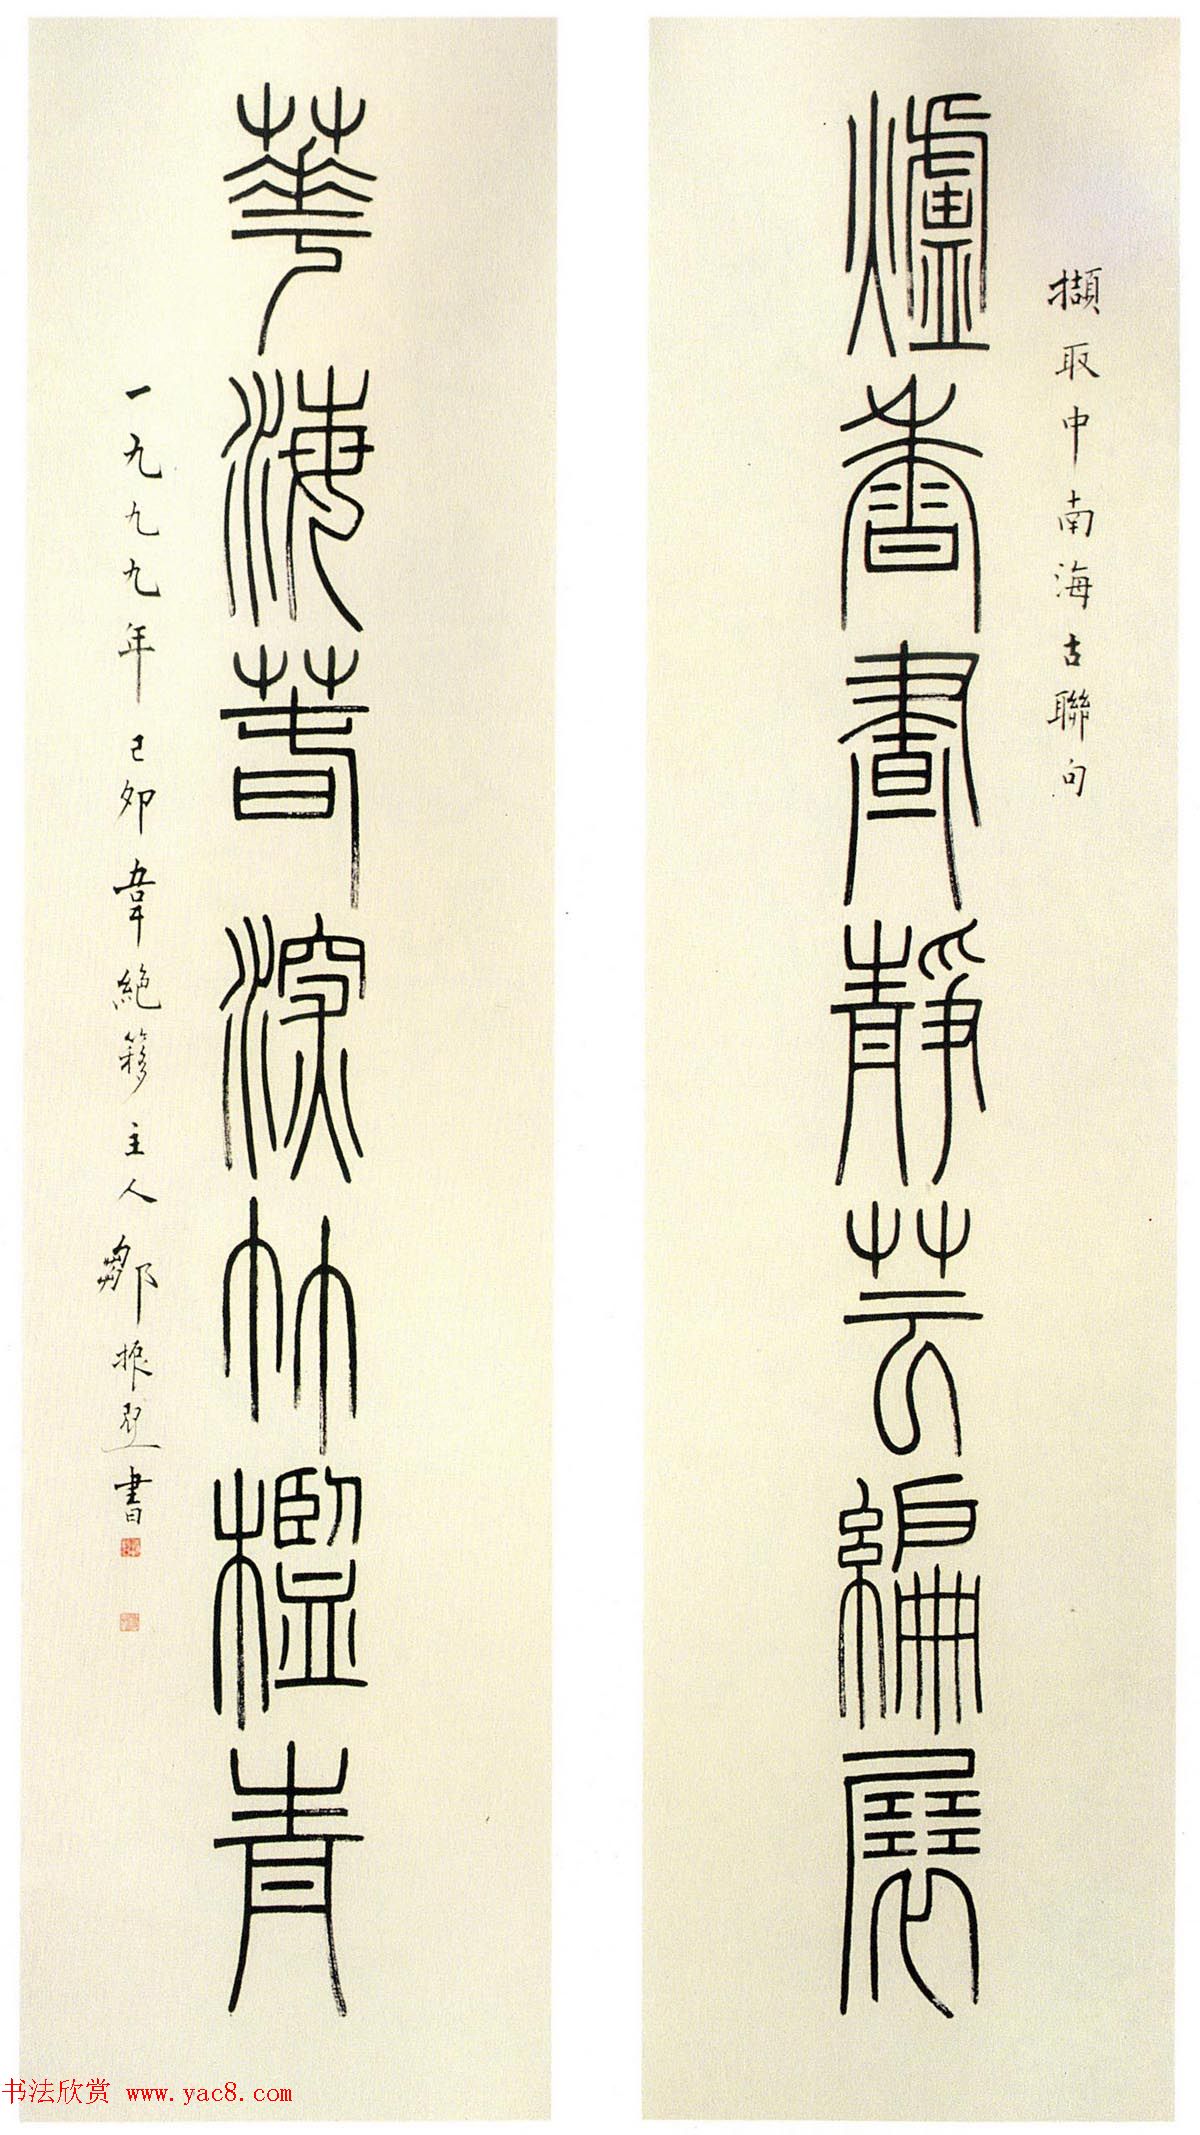 擷取中南海古聯句
爐香晝靜芸編展
華海春深竹檻青
一九九九年己卯韋絕簃主人鄒振亞書
书法欣赏 www.yac8.com